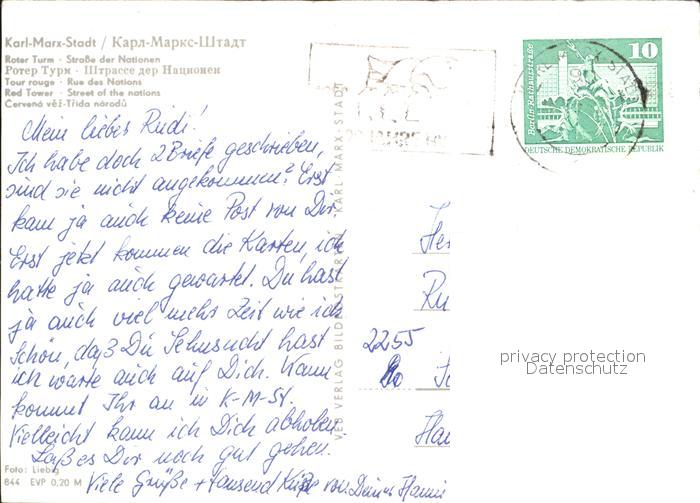 Karl-Marx-Stadt / Карл-Маркс-Штадт
Roter Turm · Straße der Nationen
Ротер Турм · Штрассе дер Национен
Tour rouge · Rue des Nations
Red Tower · Street of the nations
Červená věž-Třída národů
Mein lieber Rudi!
Ich habe doch 2 Briefe geschrieben,
sind sie nicht angekommen? Erst
kam ja auch keine Post von Dir.
Erst jetzt kommen die Karten, ich
hatte ja auch gewartet. Du hast
ja auch viel mehr Zeit wie ich
Schön, daß Du Sehnsucht hast
ich warte auch auf Dich. Wann
kommt Ihr an in K-M-St.
Vielleicht kann ich Dich abholen
Laß es Dir noch gut gehen.
Viele Grüße + tausend Küße von Deiner Hanni
Foto: Liebig
844 EVP 0,20 M
VEB VERLAG BILD KARL-MARX-STADT
10
Berlin-Rathausstraße
DEUTSCHE DEMOKRATISCHE REPUBLIK
Her
Ru
2255
Hau
privacy protection
Datenschutz